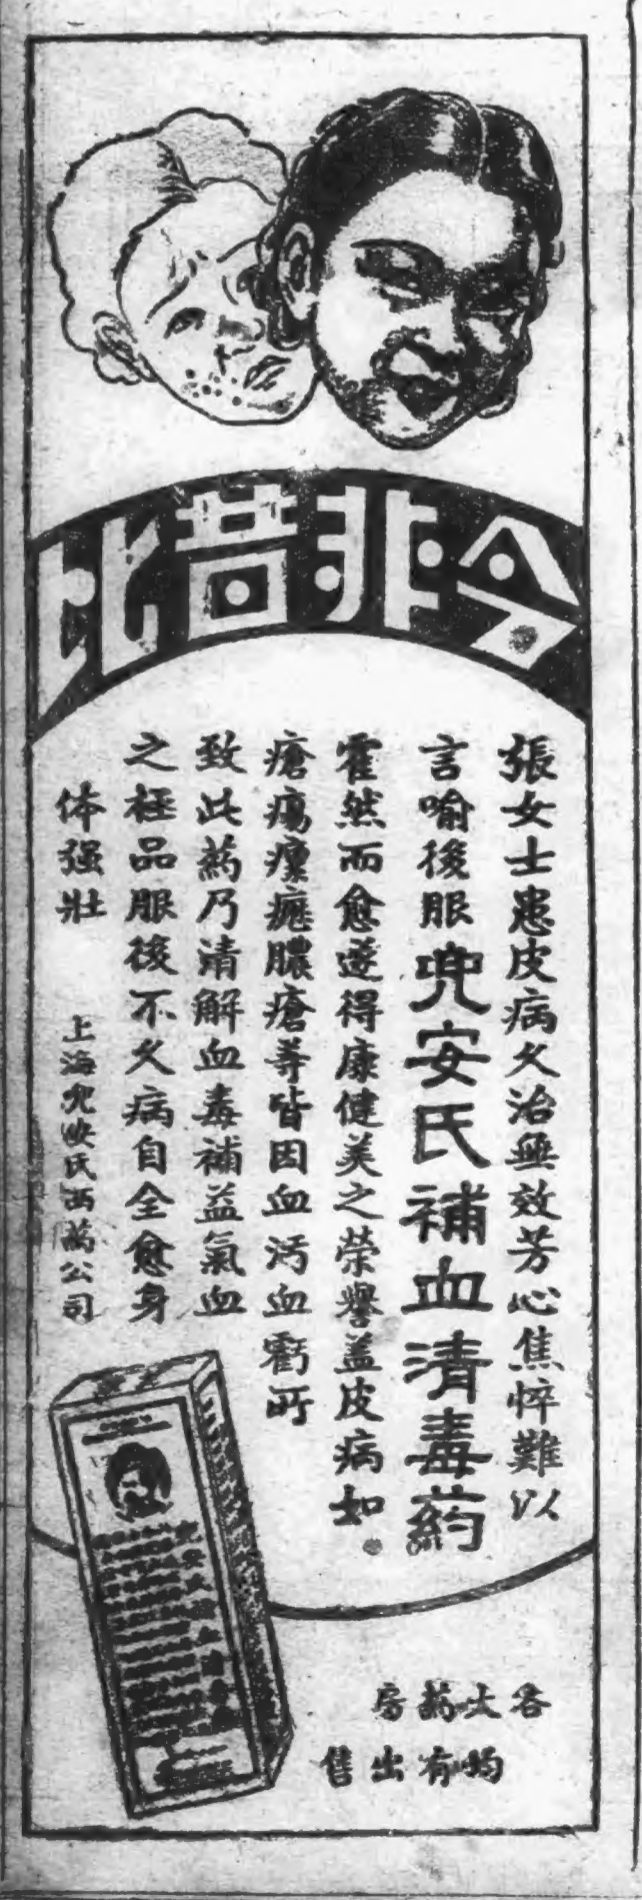 今非昔比
張女士患皮病久治無效芳心焦悴難以
言喻後服兜安氏補血清毒葯
霍然而愈遂得康健美之荣譽盖皮病如
瘡瘍瘰癧膿瘡等皆因血污血虧所
致此葯乃清解血毒補益氣血
之極品服後不久病自全愈身
体强壯
上海兜安氏西葯公司
各大葯房
均有出售